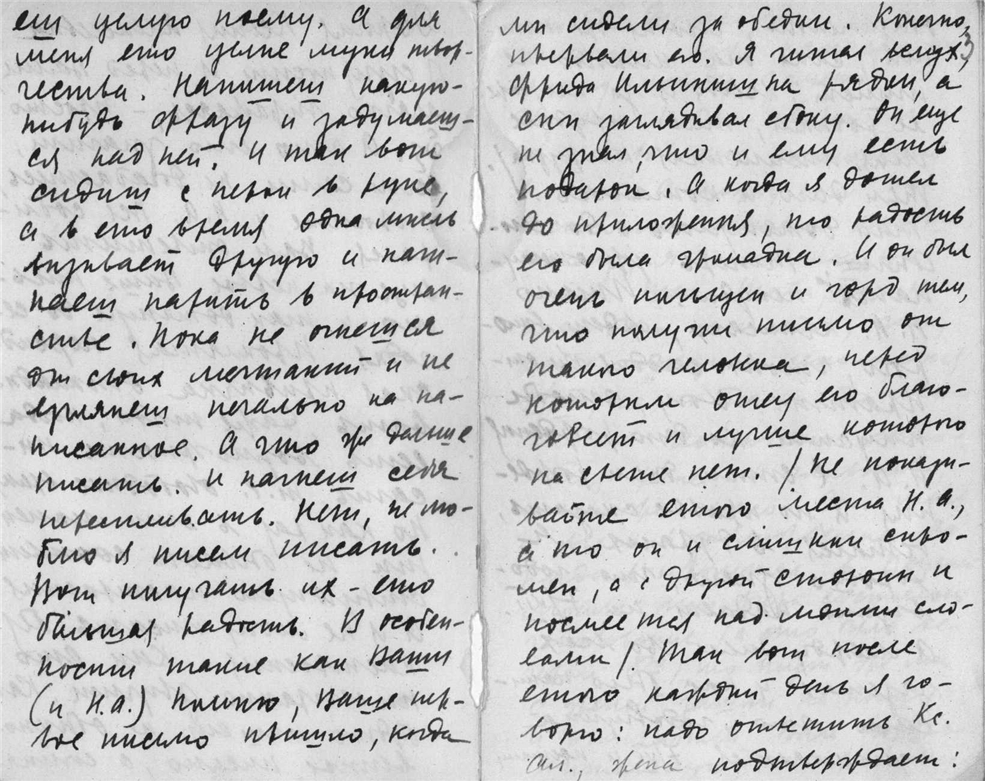 еш целую поему. А для
меня ето целые муки твор-
чества. Напишеш какую-
нибудь фразу и задумаеш-
ся над ней. И так вот
сидиш с пером в руке,
а в ето время одна мысль
вызывает другую и начи-
наеш парить в простран-
стве. Пока не очнешся
от своих мечтаний и не
взглянеш печально на на-
писанное. А что же дальше
писать. И начнеш себя
пересиливать. Нет, не лю-
блю я писем писать.
Вот получать их - ето
большая радость. В особен-
ности такие как Ваши
(и Н.А.) Помню, Ваше пер-
вое письмо пришло, когда
3
мы сидели за обедом. Конечно,
прервали его. Я читал вслух,
Фрида Ильинишна рядом, а
сын заглядывал сбоку. Он еще
не знал, что и ему есть
подарок. А когда я дошел
до приложения, то радость
его была громадна. И он был
очень польщен и горд тем,
что получил письмо от
такого человека, перед
которым отец его благо-
говеет и лучше которого
на свете нет. /Не показы-
вайте етого места Н.А.,
а то он и слишком скро-
мен, а с другой стороны и
посмеется над моими сло-
вами/. Так вот после
етого каждый день я го-
ворю: надо ответить Кс.
Ал., жена подтверждает: